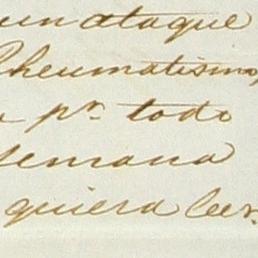 un ataque
Rheumatismo,
a pr. todo
semana
quiera leer.